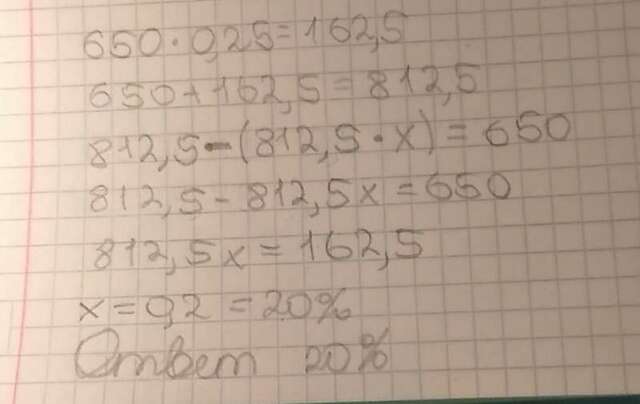 650 · 0,25 = 162,5
650 + 162,5 = 812,5
812,5 - (812,5 · x) = 650
812,5 - 812,5x = 650
812,5x = 162,5
x = 0,2 = 20%
Ответ 20%